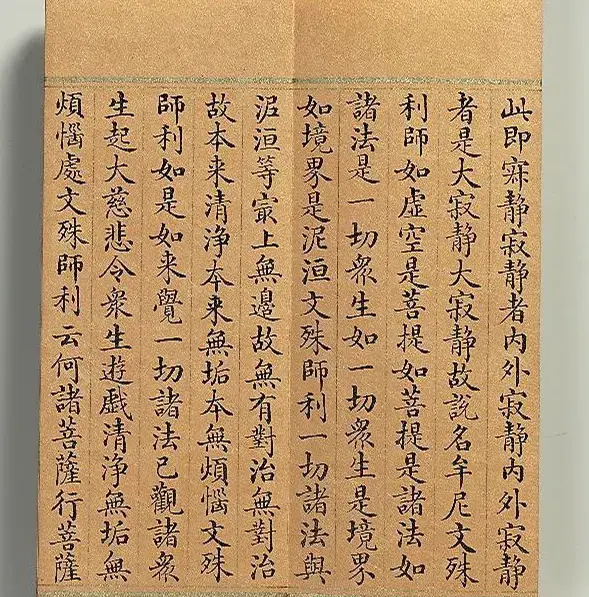 此即寂静寂静者内外寂静内外寂静
者是大寂静大寂静故說名牟尼文殊
利師如虛空是菩提如菩提是諸法如
諸法是一切衆生如一切衆生是境界
如境界是泥洹文殊師利一切諸法與
泥洹等宲上無邊故無有對治無對治
故本来清浄本来無垢本無煩惱文殊
師利如是如来覺一切諸法已觀諸衆
生起大慈悲令衆生遊戲清浄無垢無
煩惱處文殊師利云何諸菩薩行菩薩